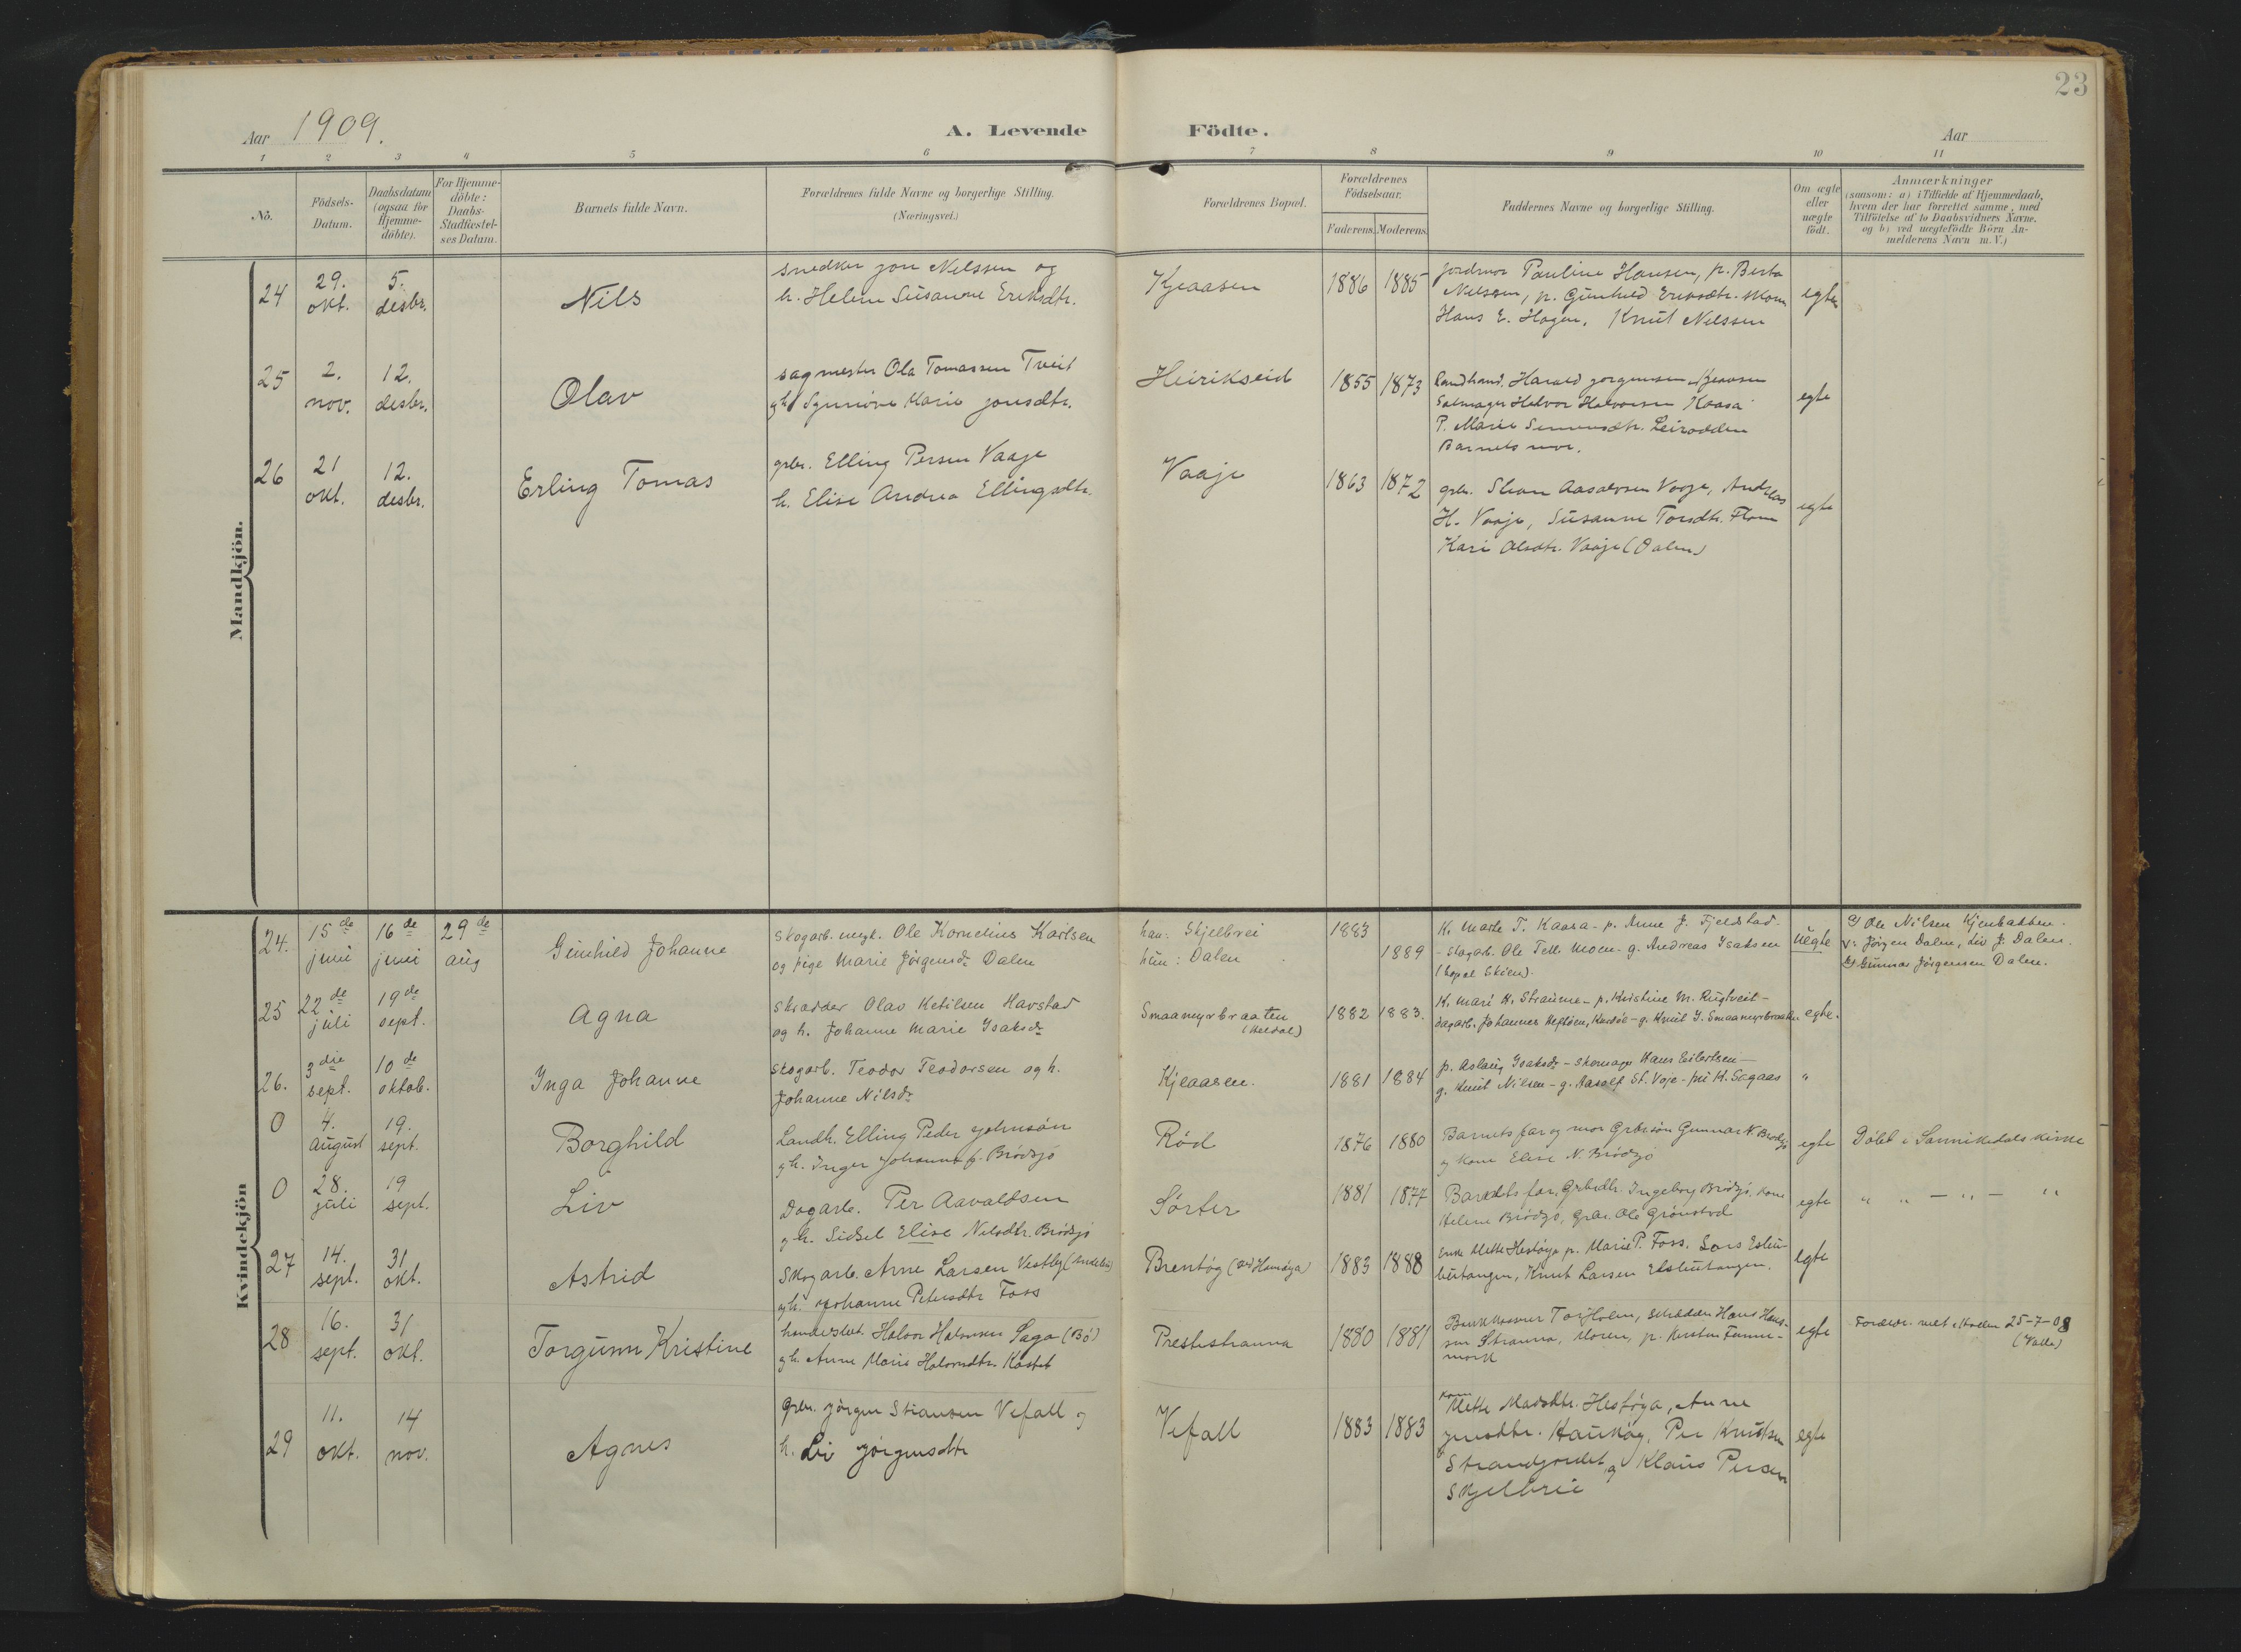 23
Aar 1909.
A. Levende Födte.
Aar
1 2 3 4 5 6 7 8 9 10 11
Nö.
Födsels-
Datum.
Daabsdatum
(ogsaa för
Hjemme-
döbte).
For Hjemme-
döbte:
Daabs-
Stadfæstel-
ses Datum.
Barnets fulde Navn.
Forældrenes fulde Navne og borgerlige Stilling.
(Næringsvei.)
Forældrenes Bopæl.
Forældrenes
Födselsaar.
Faderens. Moderens.
Faddernes Navne og borgerlige Stilling.
Om ægte
eller
uægte
födt.
Anmærkninger
(saasom: a) i Tilfælde af Hjemmedaab,
hvem der har forrettet samme, med
Tilföielse af to Daabsvidners Navne.
og b) ved uægtefödte Börn An-
melderens Navn m. V.)
Mandkjön.
24
29.
okt.
5.
desbr.
Nils
snedker Jon Nelssen og
h. Helene Susanne Eriksdtr.
Kjeaasen
1886 1885
jordmor Pauline Hansen, p. Berta
Nelssen, p. Gunhild Eriksdtr. Moen
Hans E. Hagen, Knut Nelssen
egte
25
2.
nov.
12.
desbr.
Olav
sagmester Ola Tomassen Tveit
og h. Synnöve Marie Jonsdtr.
Heirikseid
1855 1873
landhand. Harald Jörgensen Kjeaasen
Salmager Halvor Halvorsen Kaasa
P. Marie Simensdtr. Leirodden
Barnets mor.
egte
26
21
okt.
12.
desbr.
Erling Tomas
grbr. Elling Persen Vaaje
h. Elise Andrea Ellingsdtr.
Vaaje
1863 1872
grbr. Stian Aasolvsen Vaaje, Andreas
H. Vaaje, Susanne Torsdtr.
Kari Olsdtr. Vaaje (Dalen)
egte
Kvindekjön
24.
15de
juni
16de
juni
29de
aug
Gunhild Johanne
Skogarb. ungk. Ole Kornelius Karlsen
og pige Marie Jørgensdr Dalen
han: Skjelbrei
hun: Dalen
1883
1889
K. Marte T. Kaasa - p. Anne J. Fjeldstad.
- skogarb. Ole Tell. Moen - g. Andreas Isaksen
(bopæl Skien).
uegte
a) Ole Nilsen Kjenbakken.
V: Jørgen Dalen, Liv J. Dalen.
b) Gunnar Jørgensen Dalen.
25
22de
juli
19de
sept.
Agna
Skrædder Olav Ketilsen Havstad
og h. Johanne Marie Isaksdr
Smaamyrbraaten
(Heldal)
1882 1883.
K. Mari K. Straume - p. Kristine M. Rugtveit -
dagarb. Johannes Heftøen, - g. Knut I. Smaamyrbraaten
egte.
26.
3die
sept.
10de
oktob.
Inga Johanne
skogarb. Teodor Teodorsen og h.
Johanne Nilsdr
Kjeaasen.
1881 1884
p. Aslaug Isaksdr - skomager Hans Eilertsen -
g. Knut Nilsen - g. Aasolf St. Voje - K. Sagaas
"
0
4.
August
19.
sept.
Borghild
Landh. Elling Peder Johnsön
og h. Inger Johanne f. Brödsjö
Röd
1876 1880
Barnets far og mor Grbrsön Gunnar N. Brödsjö
og kone Elise N. Brödsjö
egte
Döbt i Sannikedals kirke
0
28.
juli
19
sept.
Liv
Dagarb. Per Aavaldsen
og h. Sidsel Elise Nilsdtr. Brödsjö
Sörter
1881 1877
Barnets far, Grbrdtr. Ingeborg Brödsjö, Kone
Helene Brödsjö, Grbr. Ole Grönstad
egte
" " — " — "
27
14.
sept.
31
okt.
Astrid
Skogarb. Arne Larsen Vestby
og h. Johanne Petersdtr Foss
Brentög
1883 1888
Enke Mette Hestöya p. Marie P. Foss, Lars
, Knut Larsen
egte
28
16.
sept.
31
okt.
Torgunn Kristine
handelsbet. Halvor Halvorsen Saga (Bö)
og h. Anne Marie Halvorsdtr. Kastet
Prestestranna
1880 1881
Tor Holm, skrædder Hans Han-
sen Stranna, Moren, p. Kirsten Funne-
mark
egte
Foræld. viet i Skotten 25-7-08
(Valle)
29
11.
okt.
14
nov.
Agnes
Grbr. Jörgen Stiansen Vefall og
h. Liv Jörgensdtr
Vefall
1883 1883
kone Mette Madsdtr. Hestöya, Anne
Jensdtr. Haukög, Per Knudsen
Strandjordet og Klaus Persen
Skjelbrei
egte